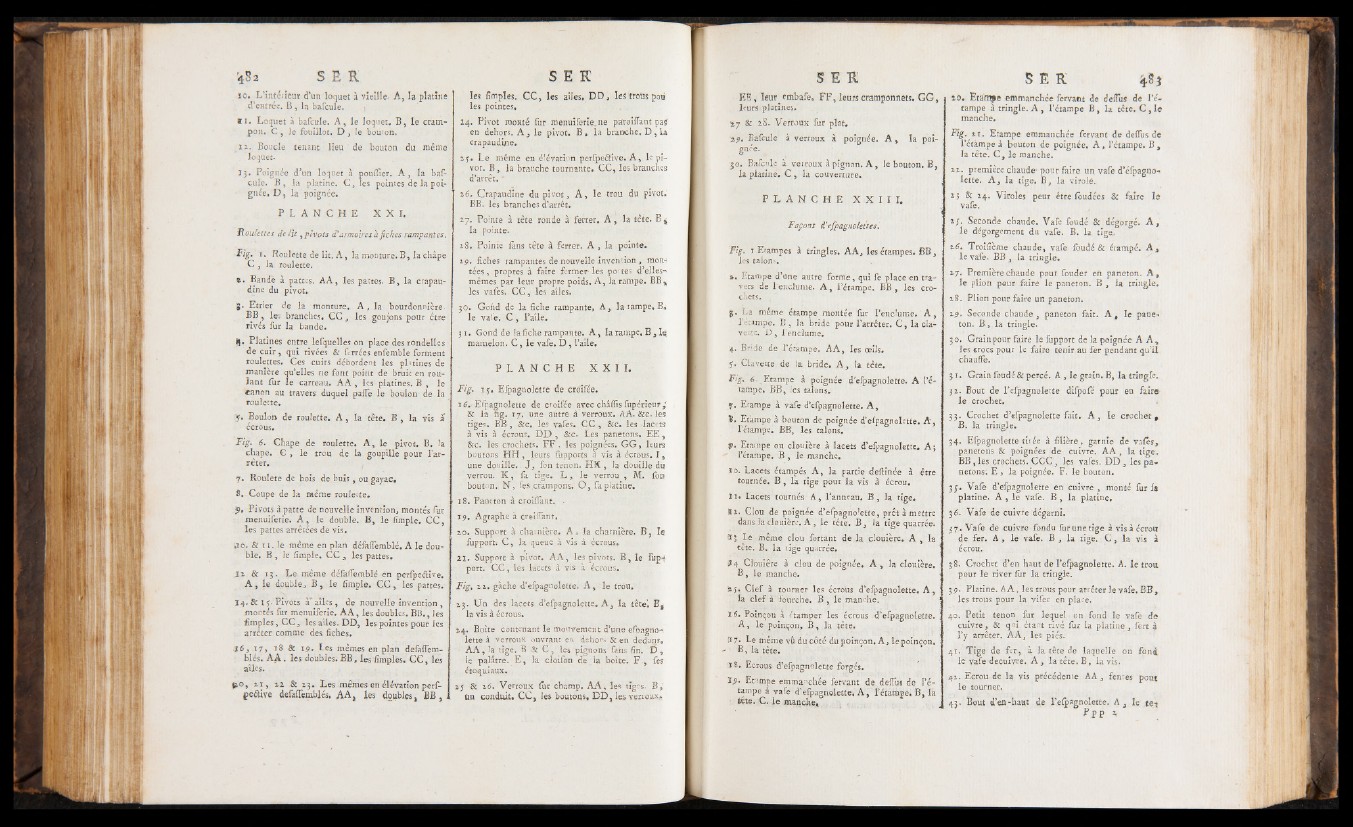 482 SER SER
10. L'intérieur d'un loquet à vieille. A, la platine
d'entrée. B, la bascule.
11. Loquet à bascule. A, le loquet. B, le cram-
pon. C, le fouillot. D, le bouton.
12. Boucle tenant lieu de bouton du même
loquet.
13. Poignée d'un loquet à poussier. A, la baf-
cule. B, la platine. C, les pointes de la poi-
gnée. D, la poignée.
PLANCHE XXI.
Roulettes de lit, pivots d'armoires à fiches rampantes.
Fig. 1. Roulette de lit. A, la monture. B, la châpe
C, la roulette.
2. Bande à pattes. AA, les pattes. B, la crapau-
dine du pivot.
3. Etrier de la monture. A, la bourdonnière.
BB, les branches. CC, les goujons pour être
rivés sur la bande.
4. Platines entre lesquelles on place des rondelles
de cuir, qui rivées & serrées ensemble forment
roulettes. Ces cuirs débordent les platines de
manière qu'elles ne font point de bruit en rou-
lant sur le carreau. AA, les platines. B, le
canon au travers duquel passe le boulon de la
roulette.
5. Boulon de roulette. A, la tête. B, la vis à
écrous.
Fig. 6. Chape de roulette. A, le pivot. B. la
chape. C, le trou de la goupille pour l'ar-
rêter.
7. Roulete de bois de buis, ou gayac.
8. Coupe de la même roulette.
9. Pivots à patte de nouvelle invention, montés sur
menuiserie. A, le double. B, le simple. CC,
les pattes arrêtées de vis.
10. & 11. le même en plan défassemblé. A le dou-
ble. B, le simple. CC, les pattes.
12 & 13. Le même défassemblé en perspective.
A, le double, B, le simple. CC, les pattes.
14. & 15. Pivots à ailes, de nouvelle invention,
montés sur menuiserie. AA, les doubles. BB., les
simples, CC, les ailes. DD, les pointes pour les
arrêter comme des fiches.
16, 17, 18 & 19. Les mêmes en plan desassem-
blés. AA. les doubles. BB, les simples. CC, les
ailes.
20, 21, 22 & 23. Les mêmes en élévation perf-
pective desassemblés. AA, les doubles, BB,
les simples. CC, les ailes. DD, les trous pour
les pointes.
24. Pivot monté sur menuiserie ne paroissant pas
en dehors. A, le pivot. B, la branche. D, la
crapaudine.
25. Le même en élévation perspective. A, le pi-
vot. B, la branche tournante. CC, les branches
d'arrêt.
26. Crapaudine du pivot, A, le trou du pivot.
BB. les branches d'arrêt.
27. Pointe à tête ronde à ferrer. A, la tête. B,
la pointe.
28. Pointe sans tête à ferrer. A, la pointe.
29. fiches rampantes de nouvelle invention, mon-
tées, propres à faire fermer les portes d'elles-
mêmes par leur propre poids. A, la rampe. BB,
les vases. CC, les ailes.
30. Gond de la fiche rampante, A, la rampe. B,
le vase. C, l'aile.
31. Gond de la fiche rampante. A, la rampe. B, le
mamelon. C, le vase. D, l'aile.
PLANCHE XXII.
Fig. 15. Espagnolette de croisée.
16. Espagnolette de croisée avec châssis supérieur,
& la fig. 17. une autre à verroux. AA. &c. les
tiges. BB, &c. les vases. CC, &c. les lacets
à vis à écrous. DD, &c. Les panetons. EE,
&c. les crochets. FF. les poignées. GG, leurs
boutons HH, leurs supports à vis à écrous. I,
une douille. J, son tenon. HK, la douille du
verrou. K, sa tige. L, le verrou, M. son
bouton. N, les crampons. O, sa platine.
18. Panneton à croissant.
19. Agraphe à croissant.
20. Support à charnière. A, la charnière. B, le
support. C, la queue à vis à écrous.
21. Support à pivot. AA, les pivots. B, le sup-
port. CC, les lacets à vis à écrous.
Fig. 22. gâche d'espagnolette. A, le trou.
23. Un des lacets d'espagnolette. A, la tête. B,
la vis à écrous.
24. Boîte contenant le mouvement d'une espagno-
lette à verroux ouvrant en dehors & en dedans.
AA, la tige. B & C, les pignons sans fin. D,
le palâtre. E, la cloison de la boite. F, ses
étoquiaux.
25 & 26. Verroux sur champ. AA, les tiges. B,
un conduit. CC, les boutons. DD, les verroux.
SER SER 483
EE, leur embase. FF, leurs cramponnets. GG,
leurs platines.
27 & 28. Verroux sur plat.
29. Bascule à verroux à poignée. A, la poi-
gnée.
30. Bascule à verroux à pignon. A, le bouton. B,
la platine. C, la couverture.
PLANCHE XXIII.
Façons d'espagnolettes.
Fig. 1 Etampes à tringles. AA, les étampes. BB,
les talons.
2. Etampe d'une autre forme, qui se place en tra-
vers de l'enclume. A, l'étampe. BB, les cro-
chets.
3. La même étampe montée sur l'enclume. A,
l'étampe. B, la bride pour l'arrêter. C, la cla-
vette. D, l'enclume.
4. Bride de l'étampe. AA, les œils.
5. Clavette de la bride. A, la tête.
Fig. 6. Etampe à poignée d'espagnolette. A l'é-
tampe. BB, les talons.
7. Etampe à vase d'espagnolette. A,
8. Etampe à bouton de poignée d'espagnolette. A,
l'étampe. BB, les talons.
9. Etampe ou clouière à lacets d'espagnolette. A;
l'étampe. B, le manche.
10. Lacets étampés A, la partie destinée à être
tournée. B, la tige pour la vis à écrou.
11. Lacets tournés A, l'anneau. B, la tige.
12. Clou de poignée d'espagnolette, prêt à mettre
dans la clouière. A, le tête. B, la tige quarrée.
13 Le même clou sortant de la clouière. A, la
tête. B. la tige quarrée.
14 Clouière à clou de poignée. A, la clouière.
B, le manche.
15. Clef à tourner les écrous d'espagnolette. A,
la clef à fourche. B, le manche.
16. Poinçon à étamper les écrous d'espagnolette.
A, le poinçon, B, la tête.
17. Le même vû du côté du poinçon. A, le poinçon,
B, la tête.
18. Ecrous d'espagnolette forgés.
19. Etampe emmanchée servant de dessus de l'é-
tampe à vase d'espagnolette. A, l'étampe. B, la
tête. C. le manche.
20. Etampe emmanchée servant de dessus de l'é-
tampe à tringle. A, l'étampe B, la tête. C, le
manche.
Fig. 21. Etampe emmanchée servant de dessus de
l'étampe à bouton de poignée. A, l'étampe. B,
la tête. C, le manche.
22. première chaude pour faire un vase d'espagno-
lette. A, la tige. B, la virole.
23 & 24. Viroles pour être soudées & faire le
vase.
25. Seconde chaude. Vase soudé & dégorgé. A,
le dégorgement du vase. B. la tige.
26. Troisième chaude, vase soudé & étampé. A,
le vase. BB, la tringle.
27. Première chaude pour souder un paneton. A,
le plion pour faire le paneton. B, la tringle.
28. Plion pour faire un paneton.
29. Seconde chaude, paneton fait. A, le pane-
ton. B, la tringle.
30. Grain pour faire le support de la poignée A A,
les crocs pour le faire tenir au fer pendant qu'il
chauffe.
31. Grain soudé & percé. A, le grain. B, la tringle.
32. Bout de l'espagnolette disposé pour en faire
le crochet.
33. Crochet d'espagnolette fait. A, le crochet,
B. la tringle.
34. Espagnolette tirée à filière, garnie de vases,
panetons & poignées de cuivre. AA, la tige.
BB, les crochets. CCC, les vases. DD, les pa-
netons. E, la poignée. F. le bouton.
35. Vase d'espagnolette en cuivre, monté sur sa
platine. A, le vase. B, la platine.
36. Vase de cuivre dégarni.
37. Vase de cuivre fondu sur une tige à vis à écrou
de fer. A, le vase. B, la tige. C, la vis à
écrou.
38. Crochet d'en haut de l'espagnolette. A. le trou
pour le river sur la tringle.
39. Platine. AA, les trous pour arrêter le vase, BB,
les trous pour la visser en place.
40. Petit tenon sur lequel on fond le vase de
cuivre, & qui étant rivé sur la platine, sert à
l'y arrêter. AA, les piés.
41. Tige de fer, à la tête de laquelle on fond
le vase de cuivre. A, la tête. B, la vis.
42. Ecrou de la vis précédente AA, fentes pour
le tourner.
43. Bout d'en-haut de l'espagnolette. A, le te-
Ppp 2